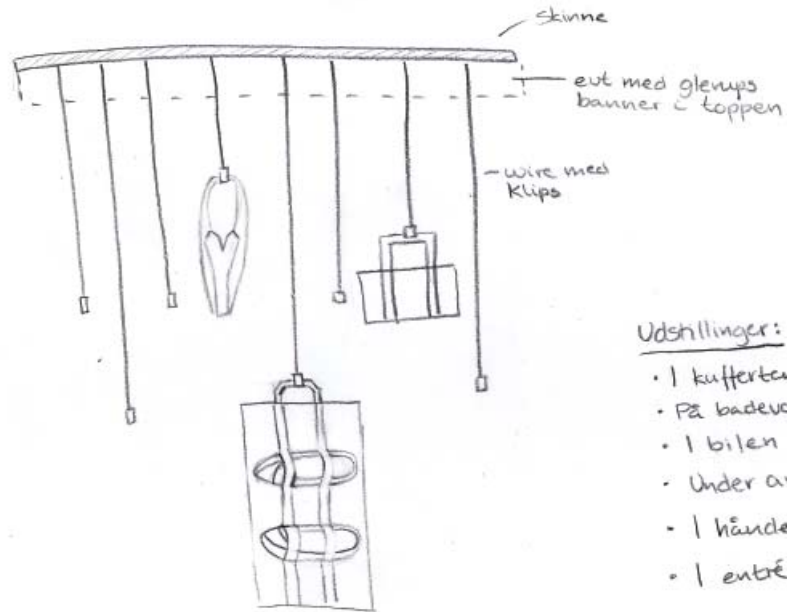 skinne
evt med glerups
banner i toppen
wire med
klips
Udstillinger:
• I kufferten
• På
• I bilen
• Under
• I
• I entré